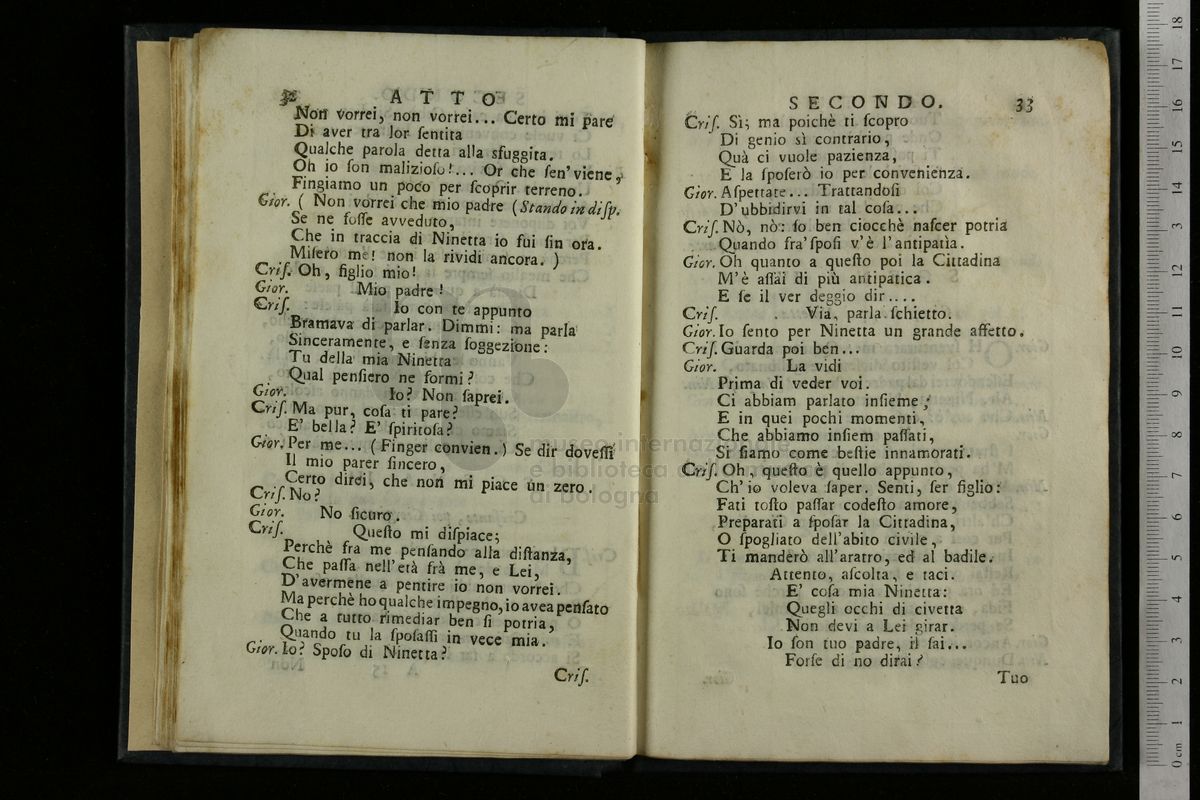 32 ATTO
Non vorrei, non vorrei... Certo mi pare
Di aver tra lor ſentita
Qualche parola detta alla sfuggita.
Oh io ſon malizioſo!... Or che ſen'viene,
Fingiamo un poco per ſcoprir terreno.
Gior. ( Non vorrei che mio padre (Stando in diſp.
Se ne foſſe avveduto,
Che in traccia di Ninetta io fui ſin ora.
Miſero me! non la rividi ancora. )
Criſ. Oh, figlio mio!
Gior. Mio padre!
Criſ. Io con te appunto
Bramava di parlar. Dimmi: ma parla
Sinceramente, e ſenza ſoggezione:
Tu della mia Ninetta
Qual penſiero ne formi?
Gior. Io? Non ſaprei.
Criſ. Ma pur, coſa ti pare?
E' bella? E' ſpiritoſa?
Gior. Per me... (Finger convien.) Se dir doveſſi
Il mio parer ſincero,
Certo direi, che non mi piace un zero.
Criſ. No?
Gior. No ſicuro.
Criſ. Queſto mi diſpiace;
Perchè fra me penſando alla diſtanza,
Che paſſa nell'età frà me, e Lei,
D'avermene a pentire io non vorrei.
Ma perchè ho qualche impegno, io avea penſato
Che a tutto rimediar ben ſi potria,
Quando tu la ſpoſaſſi in vece mia.
Gior. Io? Spoſo di Ninetta?
Criſ.
SECONDO. 33
Criſ. Sì; ma poichè ti ſcopro
Di genio sì contrario,
Quà ci vuole pazienza,
E la ſpoſerò io per convenienza.
Gior. Aſpettate... Trattandoſi
D'ubbidirvi in tal coſa...
Criſ. Nò, nò: ſo ben ciocchè naſcer potria
Quando fra'ſpoſi v'è l'antipatìa.
Gior. Oh quanto a queſto poi la Cittadina
M'è aſſai di più antipatica.
E ſe il ver deggio dir....
Criſ. Via, parla ſchietto.
Gior. Io ſento per Ninetta un grande affetto.
Criſ. Guarda poi ben...
Gior. La vidi
Prima di veder voi.
Ci abbiam parlato inſieme;
E in quei pochi momenti,
Che abbiamo inſiem paſſati,
Si ſiamo come beſtie innamorati.
Criſ. Oh, queſto è quello appunto,
Ch'io voleva ſaper. Senti, ſer figlio:
Fati toſto paſſar codeſto amore,
Preparati a ſpoſar la Cittadina,
O ſpogliato dell'abito civile,
Ti manderò all'aratro, ed al badile.
Attento, aſcolta, e taci.
E' coſa mia Ninetta:
Quegli occhi di civetta
Non devi a Lei girar.
Io ſon tuo padre, il ſai...
Forſe di no dirai?
Tuo
museo internazionale
e biblioteca
di bologna